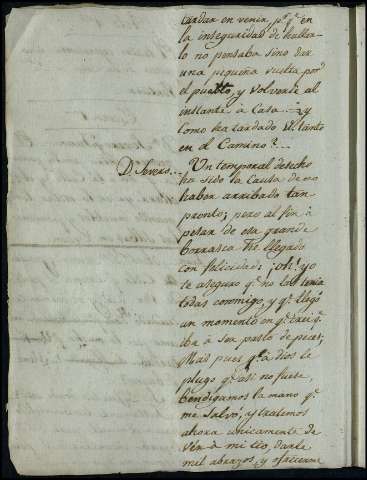 tardar en venir, p.r q.e en
la inseguridad de hallar-
lo no pensaba sino dar
una pequeña vuelta por
el pueblo, y volverse al
instante à Casa ... y
Como ha tardado V. tanto
en el Camino?...
D. Severo... Un temporal desecho
ha sido la Causa de no
haber arribado tan
pronto; pero al fin à
pesar de esa grande
borrasca he llegado
con felicidad: ¡oh! yo
te aseguro q.e no las tenia
todas conmigo, y q.e llegó
un momento en q.e crei q.e
iba à ser pasto de peces;
Mas pues q.e à dios le
plugo q.e asi no fuese,
bendigamos la mano q.e
me Salvó, y tratemos
ahora unicamente de
Ver à mi tio, darle
mil abrazos, y ofrecerme